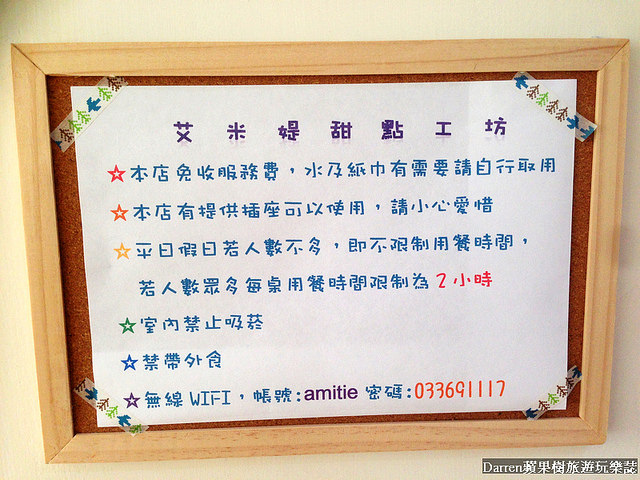 艾米媞甜點工坊
☆本店免收服務費，水及紙巾有需要請自行取用
☆本店有提供插座可以使用，請小心愛惜
☆平日假日若人數不多，即不限制用餐時間，
若人數眾多每桌用餐時間限制為 2小時
☆室內禁止吸菸
☆禁帶外食
☆無線 WIFI，帳號:amitie 密碼:033691117
Darren蘋果樹旅遊玩樂誌